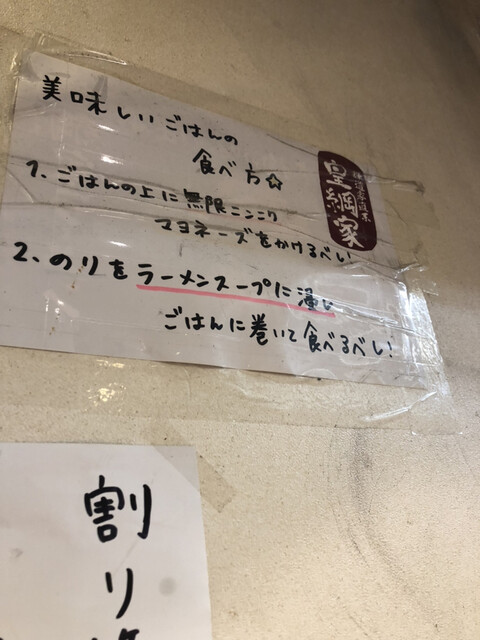 美味しいごはんの
食べ方☆
1. ごはんの上に無限ニンニク
マヨネーズをかけるべし
2. のりをラーメンスープに浸し
ごはんに巻いて食べるべし!
皇綱家
割り